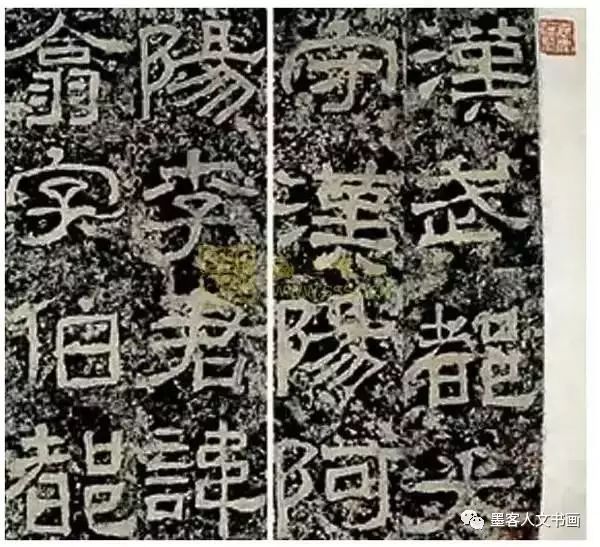 漢武都太
守漢陽阿
陽李君諱
翕字伯都
墨客人文书画